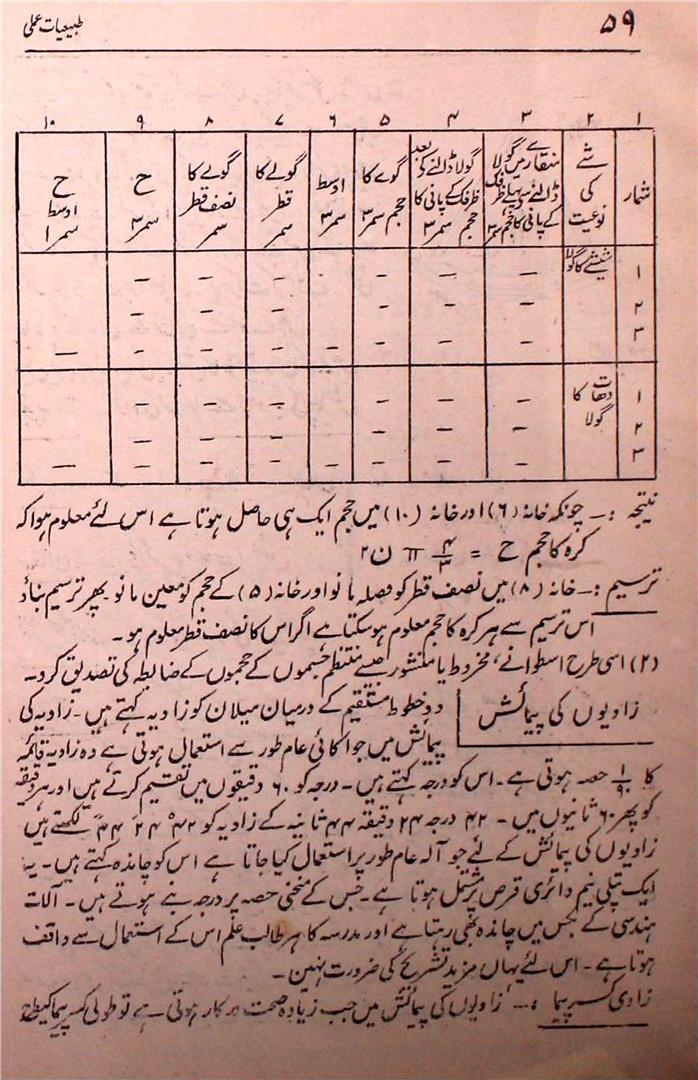 ۵۹ طبیعیات عملی
۱ ۲ ۳ ۴ ۵ ۶ ۷ ۸ ۹ ۱۰
شمار
شے کی نوعیت
منقارے میں گولا ڈالنے سے پہلے ظرف کے پانی کا حجم سمر۳
گولا ڈالنے کے بعد ظرف کے پانی کا حجم سمر۳
گوے کا حجم سمر۳
اوسط سمر۳
گولے کا قطر سمر
گولے کا نصف قطر سمر
ح سمر۳
ح اوسط سمر۱
۱ شیشے کا گولا — — — — — —
۲ — — — — — —
۳ — — — — — — — —
۱ دھات کا گولا — — — — — —
۲ — — — — — —
۳ — — — — — — — —
نتیجہ :۔ چونکہ خانہ (۶) اور خانہ (۱۰) میں حجم ایک ہی حاصل ہوتا ہے اس لئے معلوم ہوا کہ
کرہ کا حجم ح = ۴/۳ π ن۲
ترسیم :۔ خانہ (۸) میں نصف قطر کو فصلہ مانو اور خانہ (۵) کے حجم کو معین مانو پھر ترسیم بناؤ
اس ترسیم سے ہر کرہ کا حجم معلوم ہوسکتا ہے اگر اس کا نصف قطر معلوم ہو۔
(۲) اسی طرح اسطوانے، مخروط یا منشور جیسے منتظم جسموں کے حجموں کے ضابطہ کی تصدیق کرو۔
زاویوں کی پیمائش
دو خطوط مستقیم کے درمیان میلان کو زاویہ کہتے ہیں۔ زاویہ کی
پیمائش میں جو اکائی عام طور سے استعمال ہوتی ہے وہ زاویہ قائمہ
کا ۱/۹۰ حصہ ہوتی ہے۔ اس کو درجہ کہتے ہیں۔ درجہ کو ۶۰ دقیقوں میں تقسیم کرتے ہیں اور ہر دقیقہ
کو پھر ۶۰ ثانیوں میں۔ ۴۲ درجہ ۲۴ دقیقہ ۴۴ ثانیہ کے زاویہ کو ۴۲° ۲۴′ ۴۴″ لکھتے ہیں
زاویوں کی پیمائش کے لئے جو آلہ عام طور پر استعمال کیا جاتا ہے اس کو چاندہ کہتے ہیں۔ یہ
ایک پتلی نیم دائری قرص پر مشتمل ہوتا ہے۔ جس کے منحنی حصہ پر درجہ بنے ہوتے ہیں۔ آلات
ہندسی کے بکس میں چاندہ بھی رہتا ہے اور مدرسہ کا ہر طالب علم اس کے استعمال سے واقف
ہوتا ہے۔ اس لئے یہاں مزید تشریح کی ضرورت نہیں۔
زاوی کسر پیما :۔ زاویوں کی پیمائش میں جب زیادہ صحت درکار ہوتی ہے تو طولی کسر پیما کیطرح